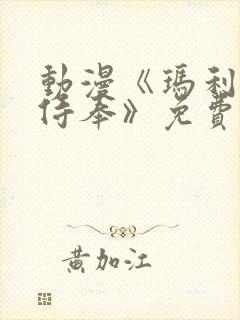 動漫《瑪利
侍奉》免費
黃加江